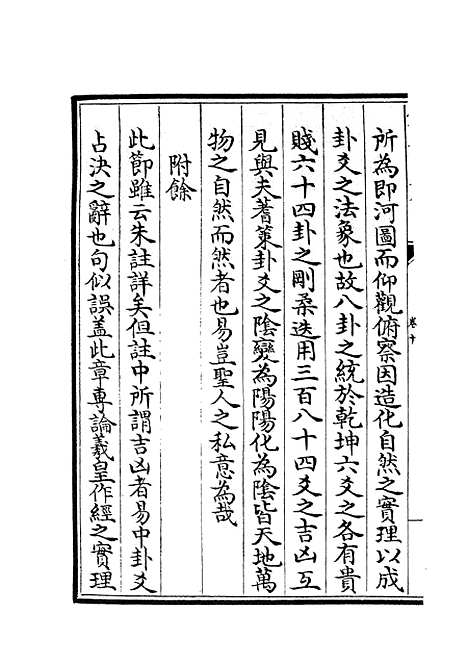 所為即河圖而仰觀俯察因造化自然之實理以成
卦爻之法象也故八卦之統於乾坤六爻之各有貴
賤六十四卦之剛柔迭用三百八十四爻之吉凶互
見與夫蓍策卦爻之陰變為陽陽化為陰皆天地萬
物之自然而然者也易豈聖人之私意為哉
附餘
此節雖云朱註詳矣但註中所謂吉凶者易中卦爻
占決之辭也句似誤盖此章專論羲皇作經之實理
卷十